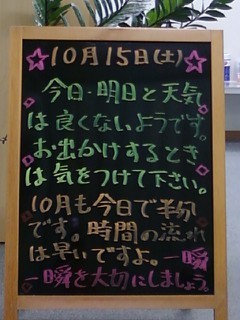 10月15日(土)
今日・明日と天気
は良くないようです。
お出かけするとき
は気をつけて下さい。
10月も今日で半分
です。時間の流れ
は早いですよ。一瞬
一瞬を大切にしましょう。